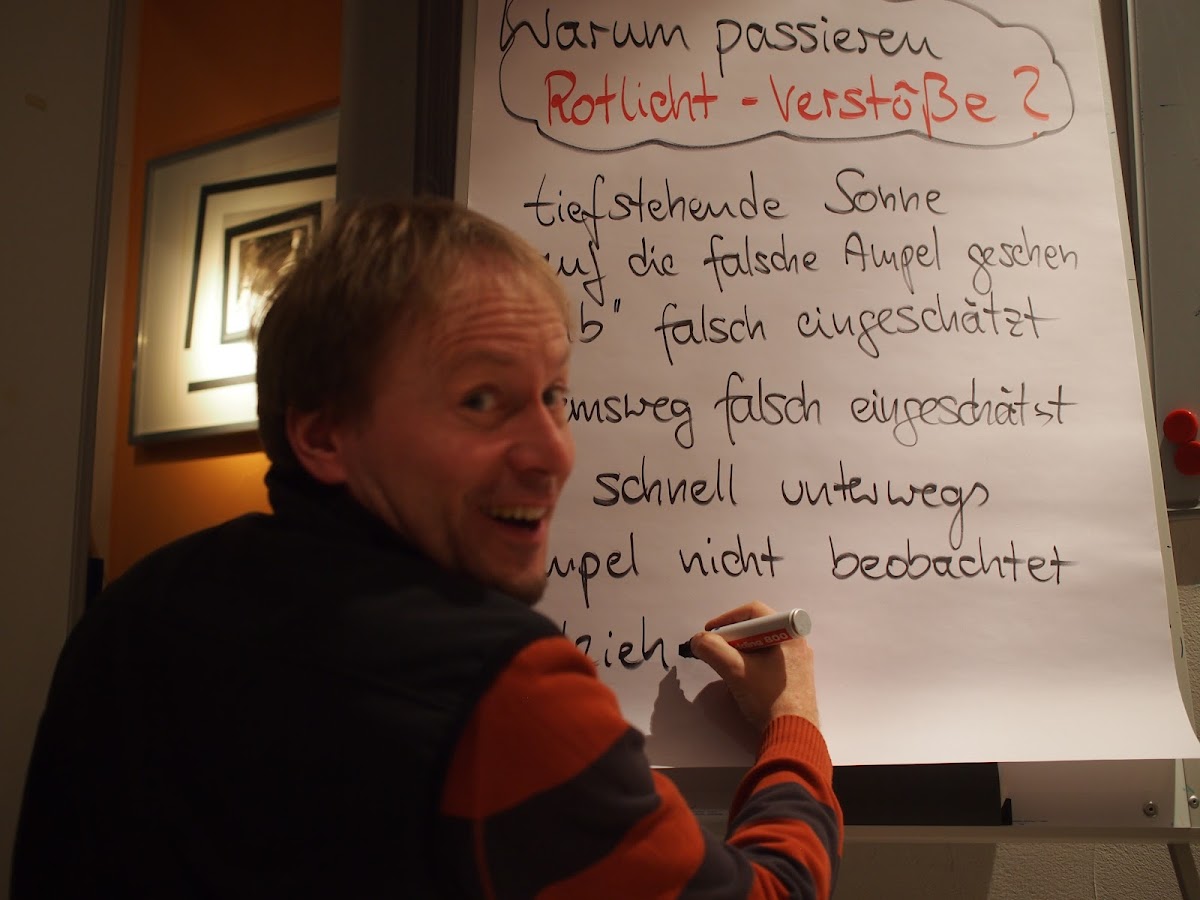 Warum passieren
Rotlicht-Verstöße?
tiefstehende Sonne
auf die falsche Ampel gesehen
falsch eingeschätzt
falsch eingeschätzt
schnell unterwegs
nicht beobachtet
edding 800